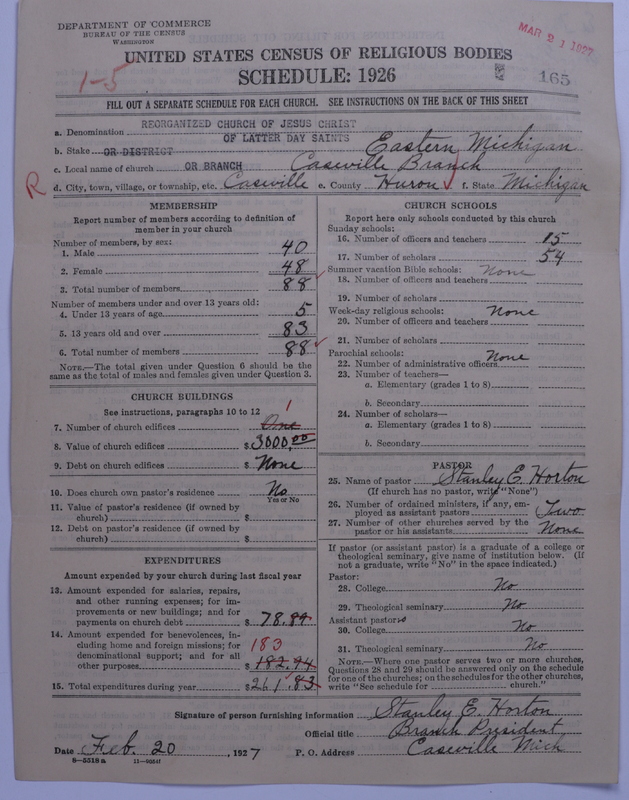 DEPARTMENT OF COMMERCE
BUREAU OF THE CENSUS
WASHINGTON
MAR 21 1927
UNITED STATES CENSUS OF RELIGIOUS BODIES
SCHEDULE: 1926
1-5
165
FILL OUT A SEPARATE SCHEDULE FOR EACH CHURCH. SEE INSTRUCTIONS ON THE BACK OF THIS SHEET
a. Denomination REORGANIZED CHURCH OF JESUS CHRIST
OF LATTER DAY SAINTS
b. Stake OR DISTRICT Eastern Michigan
c. Local name of church OR BRANCH Caseville Branch
R
d. City, town, village, or township, etc. Caseville e. County Huron f. State Michigan
MEMBERSHIP
Report number of members according to definition of
member in your church
Number of members, by sex:
1. Male 40
2. Female 48
3. Total number of members 88
Number of members under and over 13 years old:
4. Under 13 years of age 5
5. 13 years old and over 83
6. Total number of members 88
NOTE.—The total given under Question 6 should be
same as the total of males and females given under Question 3.
CHURCH BUILDINGS
See instructions, paragraphs 10 to 12
1
7. Number of church edifices One
8. Value of church edifices $3000.00
9. Debt on church edifices $ None
10. Does church own pastor's residence No
Yes or No
11. Value of pastor's residence (if owned by
church) $
12. Debt on pastor's residence (if owned by
church) $
EXPENDITURES
Amount expended by your church during last fiscal year
13. Amount expended for salaries, repairs,
and other running expenses; for im-
provements or new buildings; and for
payments on church debt $ 78.89
14. Amount expended for benevolences, in-
cluding home and foreign missions; for
denominational support; and for all
other purposes 183 $ 182.94
15. Total expenditures during year $ 261.83
CHURCH SCHOOLS
Report here only schools conducted by this church
Sunday schools:
16. Number of officers and teachers 15
17. Number of scholars 54
Summer vacation Bible schools: None
18. Number of officers and teachers
19. Number of scholars
Week-day religious schools: None
20. Number of officers and teachers
21. Number of scholars
Parochial schools: None
22. Number of administrative officers
23. Number of teachers—
a. Elementary (grades 1 to 8)
b. Secondary
24. Number of scholars—
a. Elementary (grades 1 to 8)
b. Secondary
PASTOR
25. Name of pastor Stanley E. Horton
(If church has no pastor, write "None")
26. Number of ordained ministers, if any, em-
ployed as assistant pastors Two
27. Number of other churches served by the
pastor or his assistants None
If pastor (or assistant pastor) is a graduate of a college or
theological seminary, give name of institution below. (If
not a graduate, write "No" in the space indicated.)
Pastor:
28. College No
29. Theological seminary No
Assistant pastors
30. College No
31. Theological seminary No
NOTE.—Where one pastor serves two or more churches,
Questions 28 and 29 should be answered only on the schedule
for one of the churches; on the schedules for the other churches,
write "See schedule for church."
Signature of person furnishing information Stanley E. Horton
Official title Branch President
Date Feb. 20, 1927 P. O. Address Caseville Mich
8-5518a